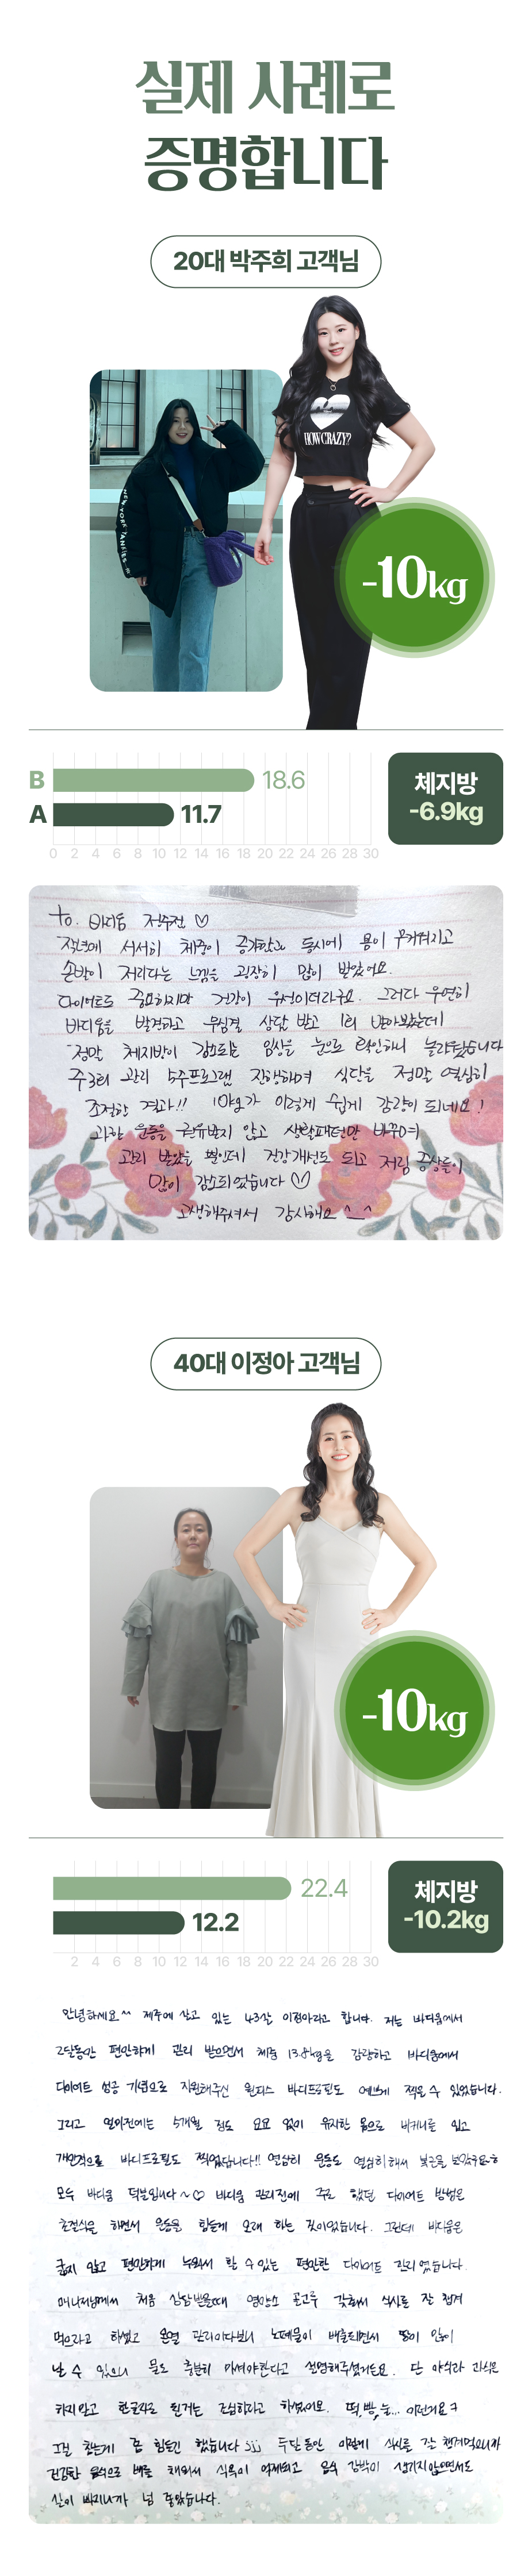 실제 사례로
증명합니다
20대 박주희 고객님
NEW YORK YANKEES
HOW CRAZY?
-10kg
B 18.6
A 11.7
0 2 4 6 8 10 12 14 16 18 20 22 24 26 28 30
체지방
-6.9kg
to. 바디움 제주점 ♡
작년에 서서히 체중이 증가함과 동시에 몸이 무거워지고
손발이 저리다는 느낌을 굉장히 많이 받았어요.
다이어트도 중요하지만 건강이 우선이더라구요. 그러다 우연히
바디움을 발견하고 무심결 상담 받고 1회 받아봤는데
정말 체지방이 감소라는 임상을 눈으로 확인하니 놀라웠습니다
주3회 관리 5주프로그램 진행하며 식단을 정말 열심히
조절한 결과!! 10kg가 이렇게 쉽게 감량이 되네요!
과한 운동을 권유받지 않고 생활패턴만 바꾸며
관리 받았을 뿐인데 건강개선도 되고 저림 증상들이
많이 감소되었습니다 ♡
고생해주셔서 감사해요 ^_^
40대 이정아 고객님
-10kg
22.4
12.2
2 4 6 8 10 12 14 16 18 20 22 24 26 28 30
체지방
-10.2kg
안녕하세요^^ 제주에 살고 있는 43살 이정아라고 합니다. 저는 바디움에서
2달동안 편안하게 관리 받으면서 체중 13.8kg을 감량하고 바디움에서
다이어트 성공 기념으로 지원해주신 원피스 바디프로필도 예쁘게 찍을 수 있었습니다.
그리고 얼마전에는 5개월 정도 요요 없이 유지한 몸으로 비키니를 입고
개인적으로 바디프로필도 찍었답니다!! 열심히 운동도 열심히 해서
모두 바디움 덕분입니다~♡ 바디움 관리전에 주로 했던 다이어트 방법은
초절식을 하면서 운동을 힘들게 오래 하는 것이었습니다. 그런데 바디움은
굶지 않고 편안하게 누워서 할 수 있는 편안한 다이어트 관리였습니다.
매니저님께서 처음 상담받을때 영양소 골고루 갖춰서 식사를 잘 챙겨
먹으라고 하셨고 온열 관리이다보니 노폐물이 배출되면서 땀이 많이
날 수 있으니 물도 충분히 마셔야한다고 설명해주셨거든요. 단 야식과 과식은
하지않고 한글자로 된거는 조심하라고 하셨어요. 떡, 빵, 술... 이런거요ㅋ
그걸 참는게 좀 힘들긴 했습니다 두달동안 이렇게 식사를 잘 챙겨먹으니까
건강한 음식으로 배를 채워서 식욕이 억제되고 음식 강박이 생기지않으면서도
살이 빠지니까 넘 좋았습니다.